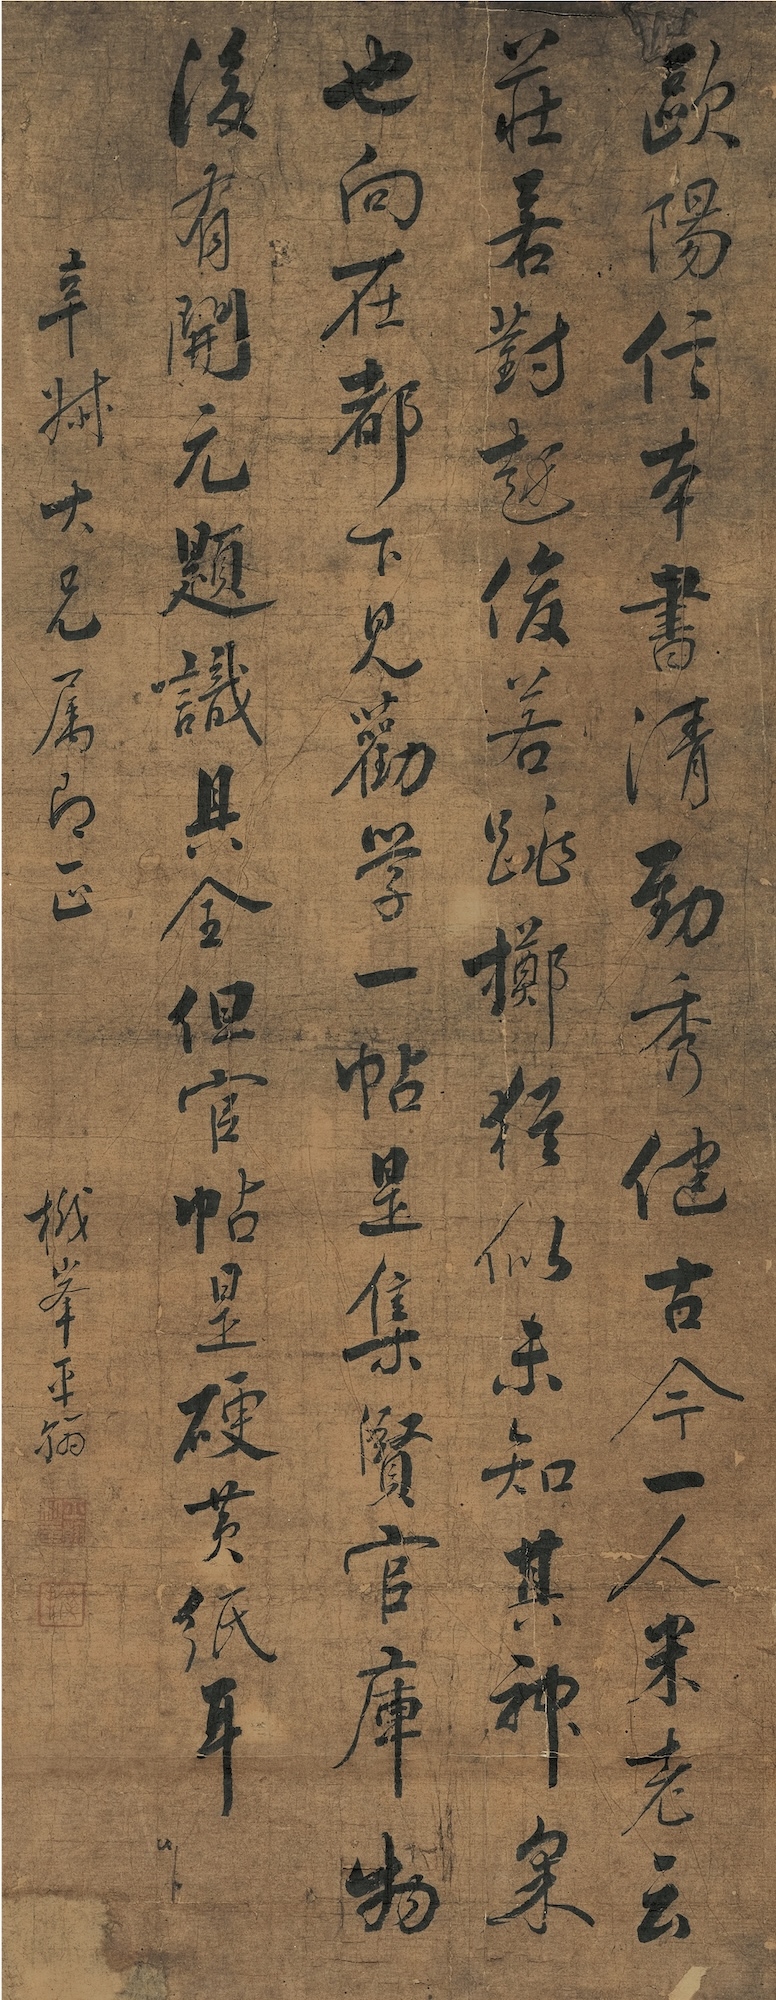 歐陽信本書清勁秀健古今一人米老云
莊若對越俊若跳擲猶似未知其神氣
也向在都下見勸學一帖是集賢官庫物
後有開元題識具全但官帖是硬黃紙耳
辛叔大兄属即正
樾峯平翁